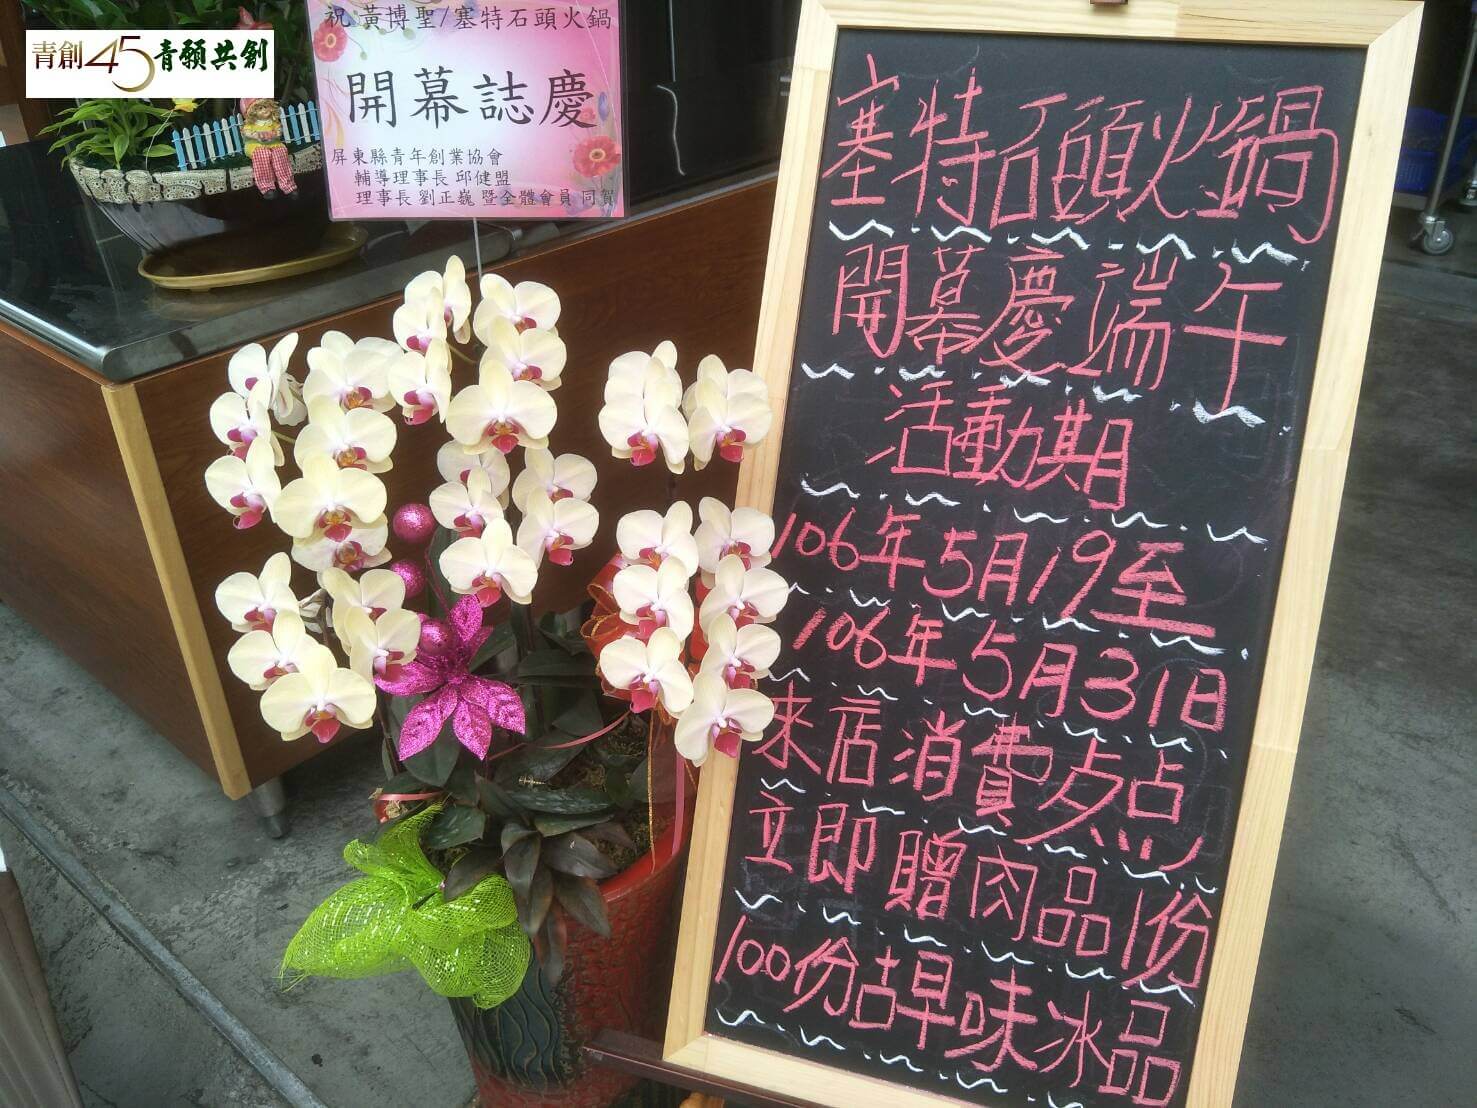 青創45青領共創
祝 黃博聖/塞特石頭火鍋
開幕誌慶
屏東縣青年創業協會
輔導理事長 邱健盟
理事長 劉正巍 暨全體會員 同賀
塞特石頭火鍋
開幕慶端午
活動期
106年5月19至
106年5月31日
來店消費点
立即贈肉品1份
100份古早味冰品